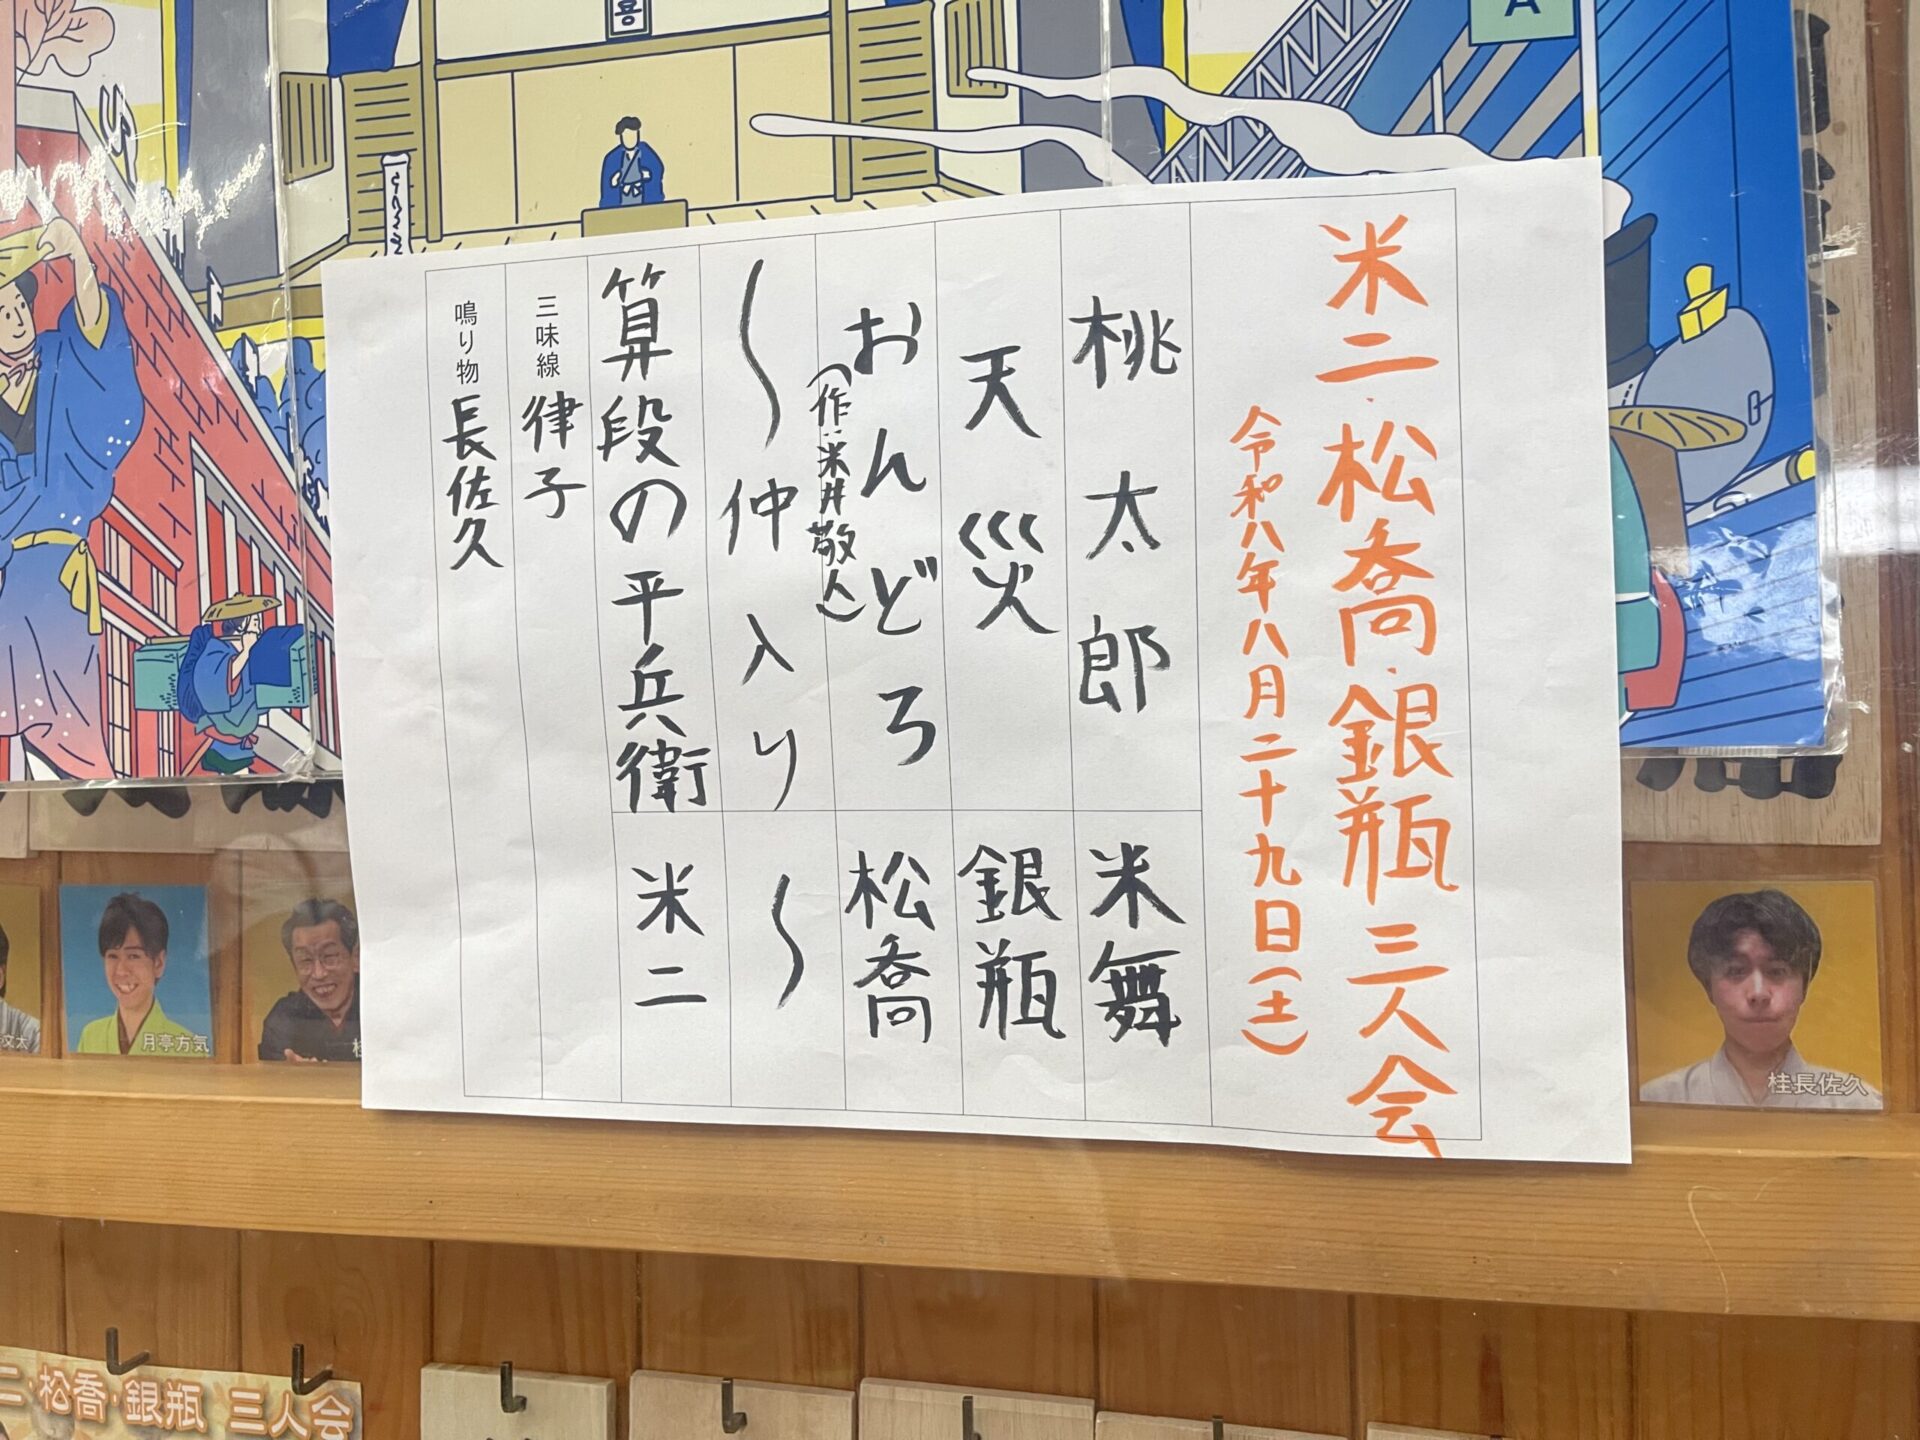 米二・松喬・銀瓶 三人会
令和八年八月二十九日(土)
桃太郎 米舞
天災 銀瓶
おんどろ 松喬
(作:米井敬人)
〜仲入り〜
算段の平兵衛 米二
三味線 律子
鳴り物 長佐久
A
月亭方気
文太
桂長佐久
二・松喬・銀瓶 三人会